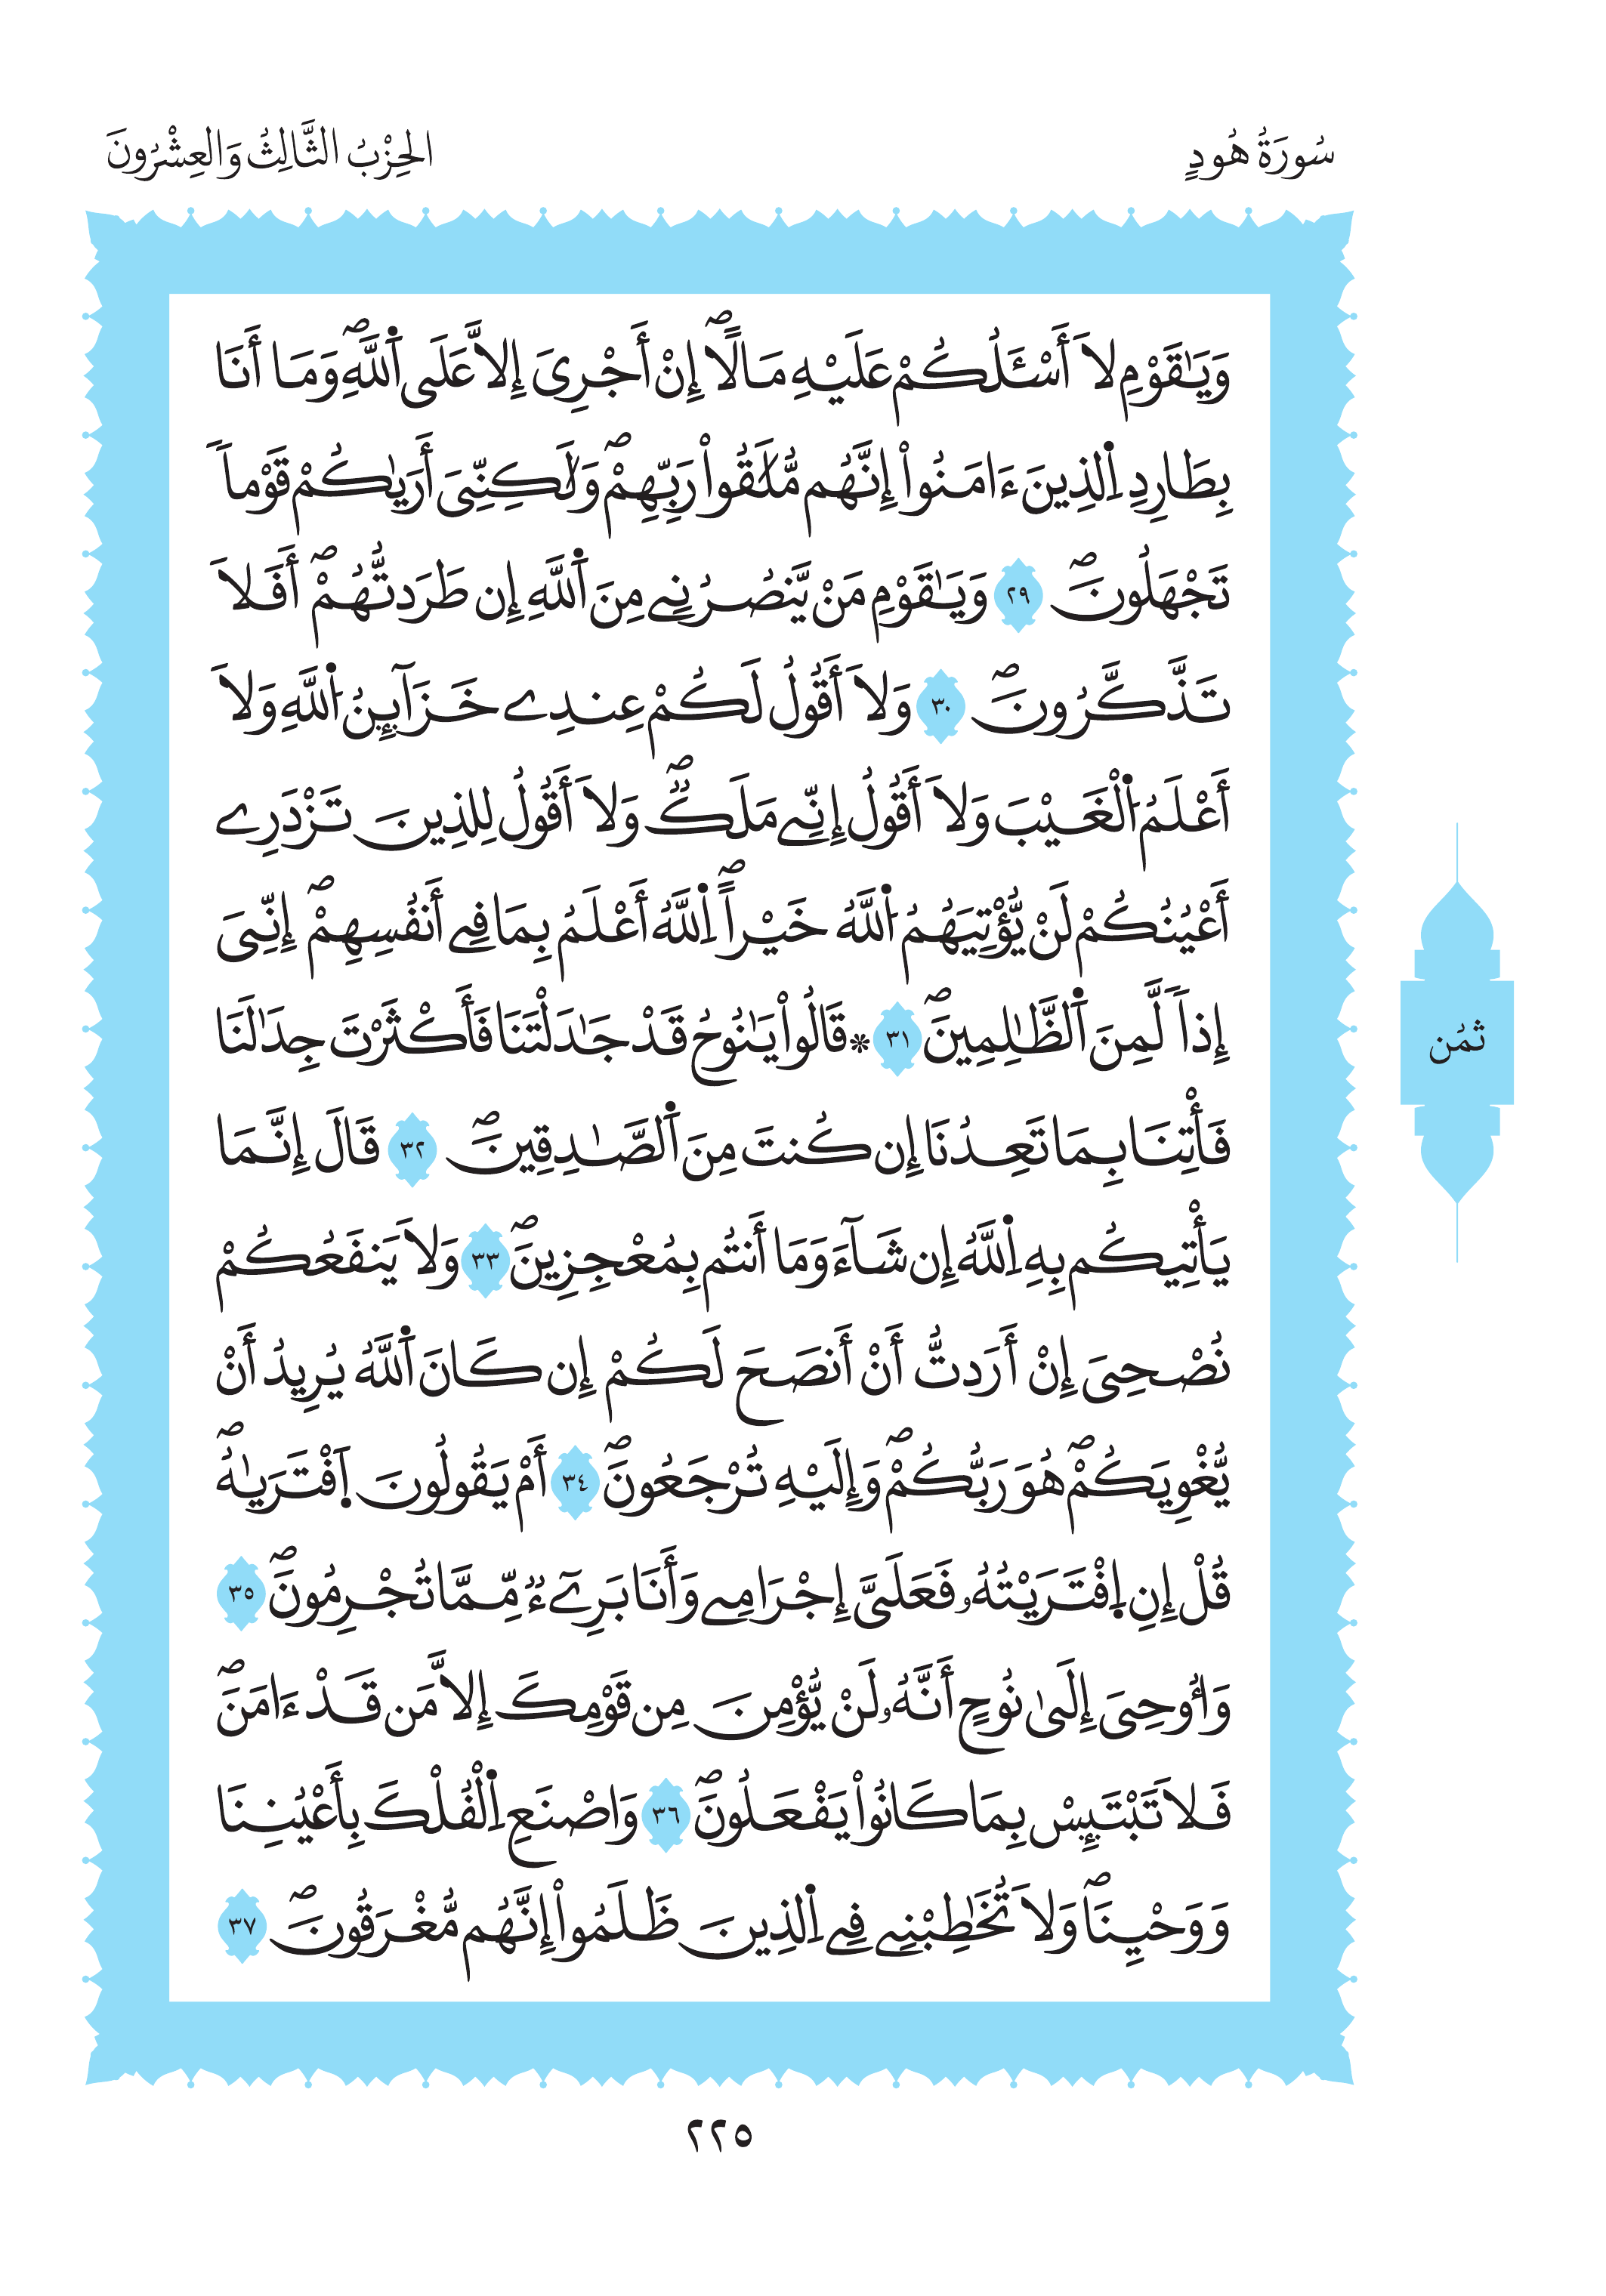 سُورَةُ هُودٍ
الحِزْبُ الثَّالِثُ وَالعِشْرُونَ
وَيَٰقَوْمِ لَا أَسْـَٔلُكُمْ عَلَيْهِ مَالًاۖ إِنْ أَجْرِيَ إِلَّا عَلَى اَ۬للَّهِۖ وَمَا أَنَا
بِطَارِدِ اِ۬لذِينَ ءَامَنُواْ إِنَّهُم مُّلَٰقُواْ رَبِّهِمْۖ وَلَٰكِنِّيَ أَرَيٰكُمْ قَوْماً
تَجْهَلُونَۖ ٢٩ وَيَٰقَوْمِ مَنْ يَّنصُرُنِے مِنَ اَ۬للَّهِ إِن طَرَدتُّهُمْۖ أَفَلَا
تَذَّكَّرُونَۖ ٣٠ وَلَا أَقُولُ لَكُمْ عِندِے خَزَآئِنُ اُ۬للَّهِ وَلَا
أَعْلَمُ اُ۬لْغَيْبَ وَلَا أَقُولُ إِنِّے مَلَكٌۖ وَلَا أَقُولُ لِلذِينَ تَزْدَرِے
أَعْيُنُكُمْ لَنْ يُّؤْتِيَهُمُ اُ۬للَّهُ خَيْراًۖ اِ۬للَّهُ أَعْلَمُ بِمَا فِے أَنفُسِهِمْۖ إِنِّيَ
إِذاً لَّمِنَ اَ۬لظَّٰلِمِينَۖ ٣١ * قَالُواْ يَٰنُوحُ قَدْ جَٰدَلْتَنَا فَأَكْثَرْتَ جِدَٰلَنَا
فَأْتِنَا بِمَا تَعِدُنَا إِن كُنتَ مِنَ اَ۬لصَّٰدِقِينَۖ ٣٢ قَالَ إِنَّمَا
يَأْتِيكُم بِهِ اِ۬للَّهُ إِن شَآءَ وَمَا أَنتُم بِمُعْجِزِينَۖ ٣٣ وَلَا يَنفَعُكُمْ
نُصْحِيَ إِنْ أَرَدتُّ أَنْ أَنصَحَ لَكُمْ إِن كَانَ اَ۬للَّهُ يُرِيدُ أَنْ
يُّغْوِيَكُمْۖ هُوَ رَبُّكُمْۖ وَإِلَيْهِ تُرْجَعُونَۖ ٣٤ أَمْ يَقُولُونَ اَ۪فْتَرَيٰهُۖ
قُلْ إِنِ اِ۪فْتَرَيْتُهُۥ فَعَلَيَّ إِجْرَامِے وَأَنَا بَرِےٓءٌ مِّمَّا تُجْرِمُونَۖ ٣٥
وَأُوحِيَ إِلَىٰ نُوحٍ أَنَّهُۥ لَنْ يُّؤْمِنَ مِن قَوْمِكَ إِلَّا مَن قَدْ ءَامَنَۖ
فَلَا تَبْتَئِسْ بِمَا كَانُواْ يَفْعَلُونَۖ ٣٦ وَاصْنَعِ اِ۬لْفُلْكَ بِأَعْيُنِنَا
وَوَحْيِنَاۖ وَلَا تُخَٰطِبْنِے فِے اِ۬لذِينَ ظَلَمُواْ إِنَّهُم مُّغْرَقُونَۖ ٣٧
ثُمُن
٢٢٥